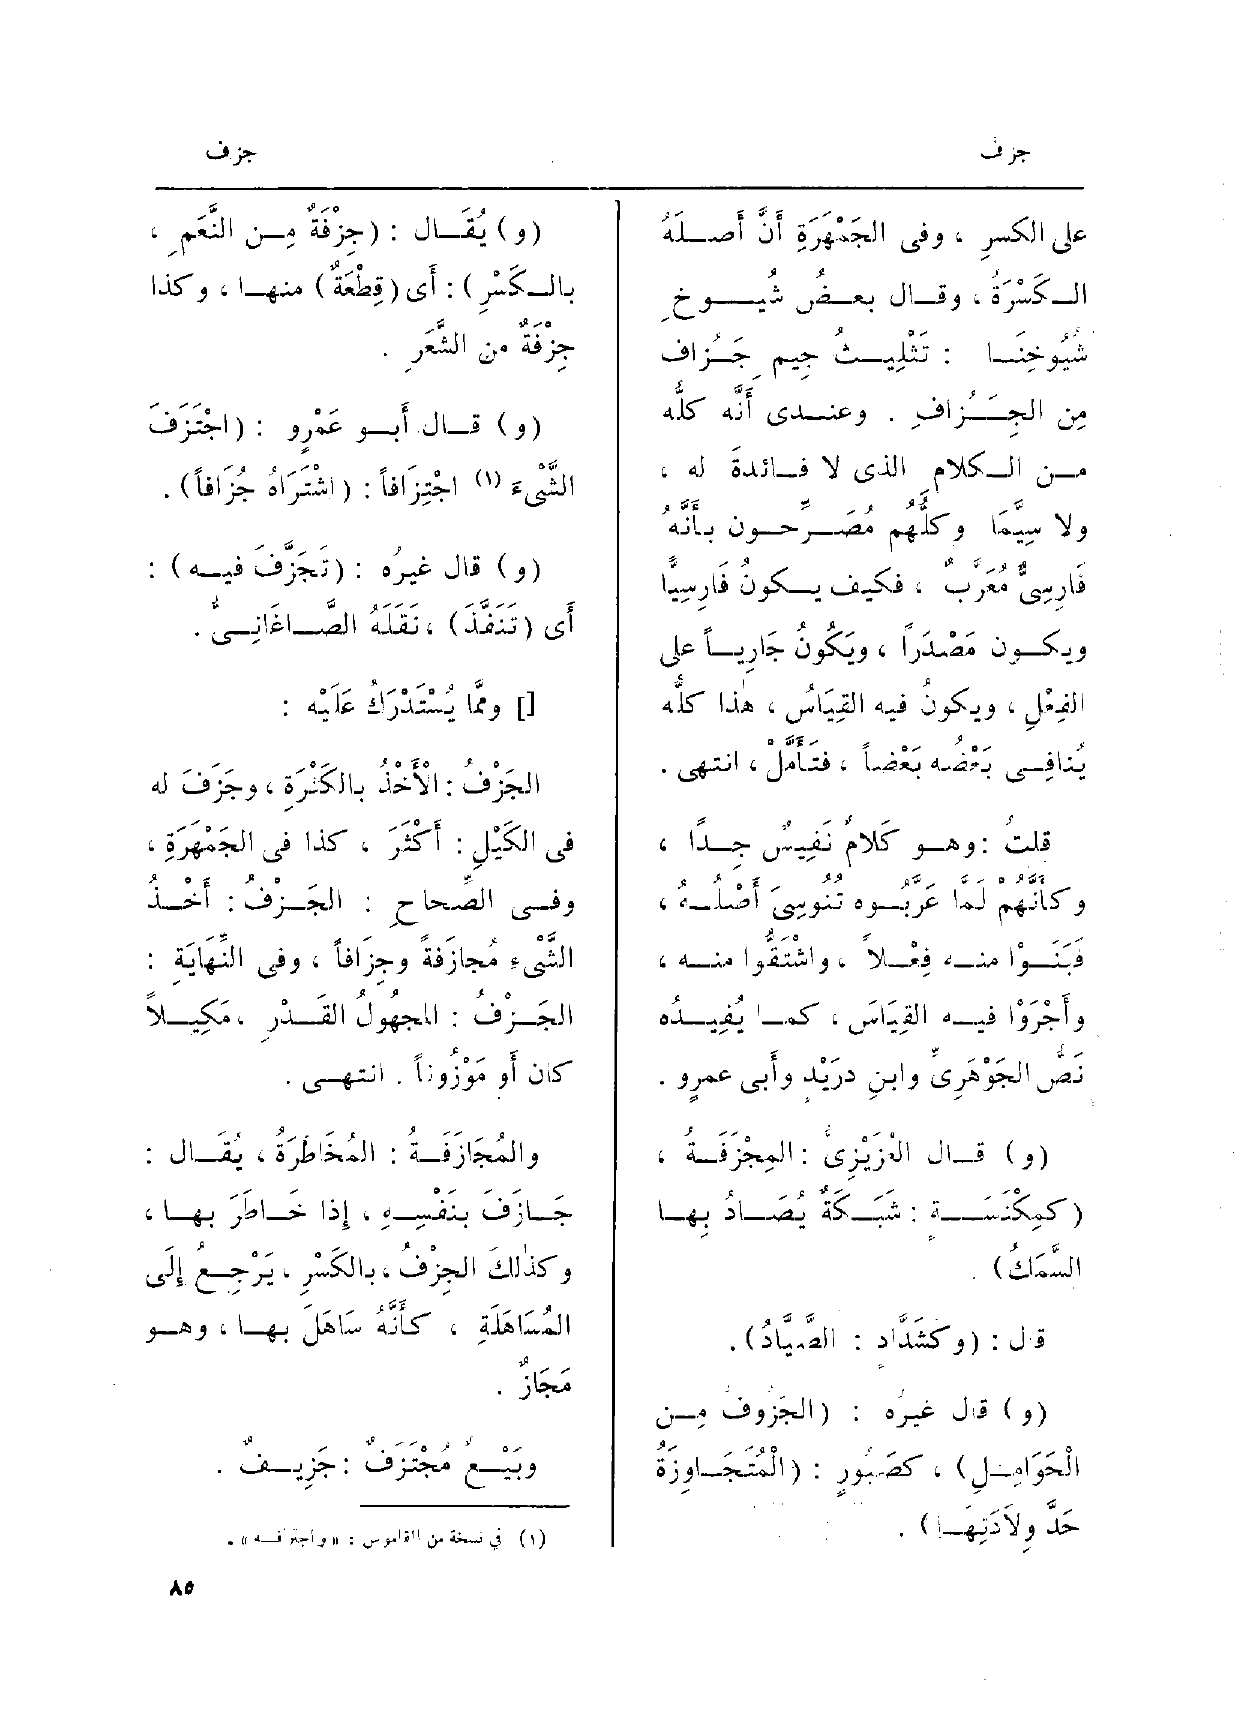 جزف
جزف
على الكسرِ ، وفى الجَمْهَرَةِ أَنَّ أَصلَهُ
الكَسْرَةُ ، وقال بعضُ شُيوخِ
شُيُوخِنَا : تَثْلِيثُ جِيمِ جُزَافِ
مِن الجِزَافِ . وعندى أَنَّه كلُّه
من الكلامِ الذى لا فائدةَ له ،
ولا سِيَّمَا وكلُّهُم مُصَرِّحون بأَنَّهُ
فَارِسِىٌّ مُعَرَّبٌ ، فكيف يكونُ فَارِسِيًّا
ويكون مَصْدَرًا ، ويَكُونُ جَارِياً على
الفِعْلِ ، ويكونُ فيه القِيَاسُ ، هٰذا كلُّه
يُنافِى بَعْضُه بَعْضاً ، فتَأَمَّلْ ، انتهى .
قلتُ : وهو كلامٌ نَفِيسٌ جِدًّا ،
وكأَنَّهُمْ لَمَّا عَرَّبُوه تُنُوسِىَ أَصْلُهُ ،
فبَنَوْا منه فِعْلاً ، واشْتَقُّوا منه ،
وأَجْرَوْا فيه القِيَاسَ ، كما يُفِيدُه
نَصُّ الجَوْهَرِىِّ وابنِ دريْدٍ وأَبى عمرٍو .
(و) قال العُزَيْزِىُّ : المِجْزَفَةُ ،
(كمِكْنَسَةٍ : شَبَكَةٌ يُصَادُ بِها
السَّمَكُ) .
قال : (وكشَدَّادٍ : الصَّيَّادُ) .
(و) قال غيرُه : (الجَزُوفُ مِن
الْحَوَامِلِ) ، كصَبُورٍ : (الْمُتَجَاوِزَةُ
حَدَّ وِلَادَتِهَا) .
(و) يُقَال : (جِزْفَةٌ مِن النَّعَمِ ،
بالكَسْرِ) : أَى (قِطْعَةٌ) منها ، وكذا
جِزْفَةٌ من الشَّعَرِ .
(و) قال أَبو عَمْرٍو : (اجْتَزَفَ
الشَّىْءَ (١) اجْتِزَافاً : (اشْتَرَاهُ جُزَافاً) .
(و) قال غيرُه : (تَجَزَّفَ فيه) :
أَى (تَنَفَّذَ) ، نَقَلَهُ الصَّاغَانِىُّ .
[] وممَّا يُسْتَدْرَكُ عَلَيْه :
الجَزْفُ : الْأَخْذُ بالكَثْرَةِ ، وجَزَفَ له
فى الكَيْلِ : أَكْثَرَ ، كذا فى الجَمْهَرَةِ ،
وفى الصِّحاحِ : الجَزْفُ : أَخْذُ
الشَّىْءِ مُجازَفَةً وجِزَافاً ، وفى النِّهَايَةِ :
الجَزْفُ : المجهولُ القَدْرِ ، مَكِيلاً
كان أَو مَوْزُوناً . انتهى .
والمُجَازَفَةُ : المُخَاطَرَةُ ، يُقَال :
جَازَفَ بنَفْسِهِ ، إِذا خَاطَرَ بها ،
وكذٰلكَ الجِزْفُ ، بالكَسْرِ ، يَرْجِعُ إِلَى
المُسَاهَلَةِ ، كأَنَّهُ سَاهَلَ بها ، وهو
مَجَازٌ .
وبَيْعٌ مُجْتَزَفٌ : جَزِيفٌ .
(١) في نسخة من القاموس : «واجتزفه» .
٨٥